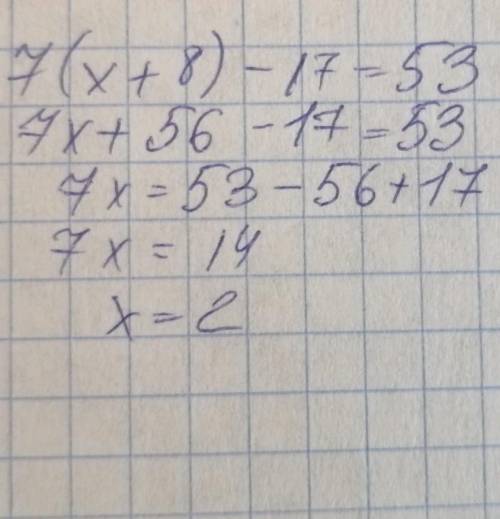 7(x+8)-17=53
7x+56-17=53
7x=53-56+17
7x=14
x=2